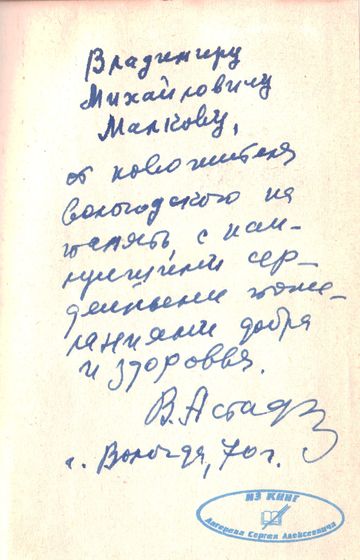 Владимиру
Михайловичу
Малкову,
от новожителя
вологодского на
память с наи-
лучшими сер-
дечными поже-
ланиями добра
и здоровья.
В. Астафь
г. Вологда, 70 г.
ИЗ КНИГ
Ангерана Сергея Алексеевича